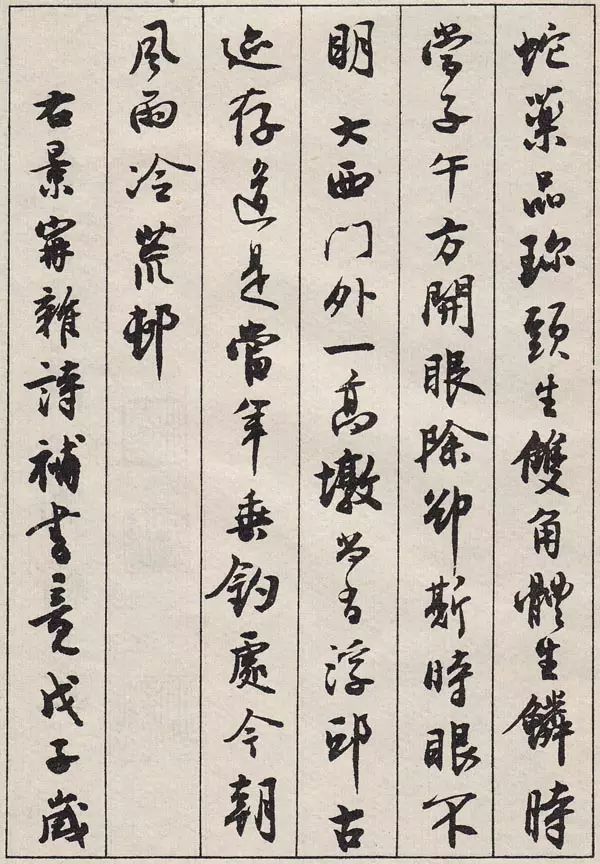 蛇藥品珎頭生雙角體生鱗時
當子午方開眼除却斯時眼不
明 大西門外一高墩尚有浮邱古
迹存道是當年垂釣處今朝
風雨冷荒邨
右景甯雜詩補書竟戊子歲